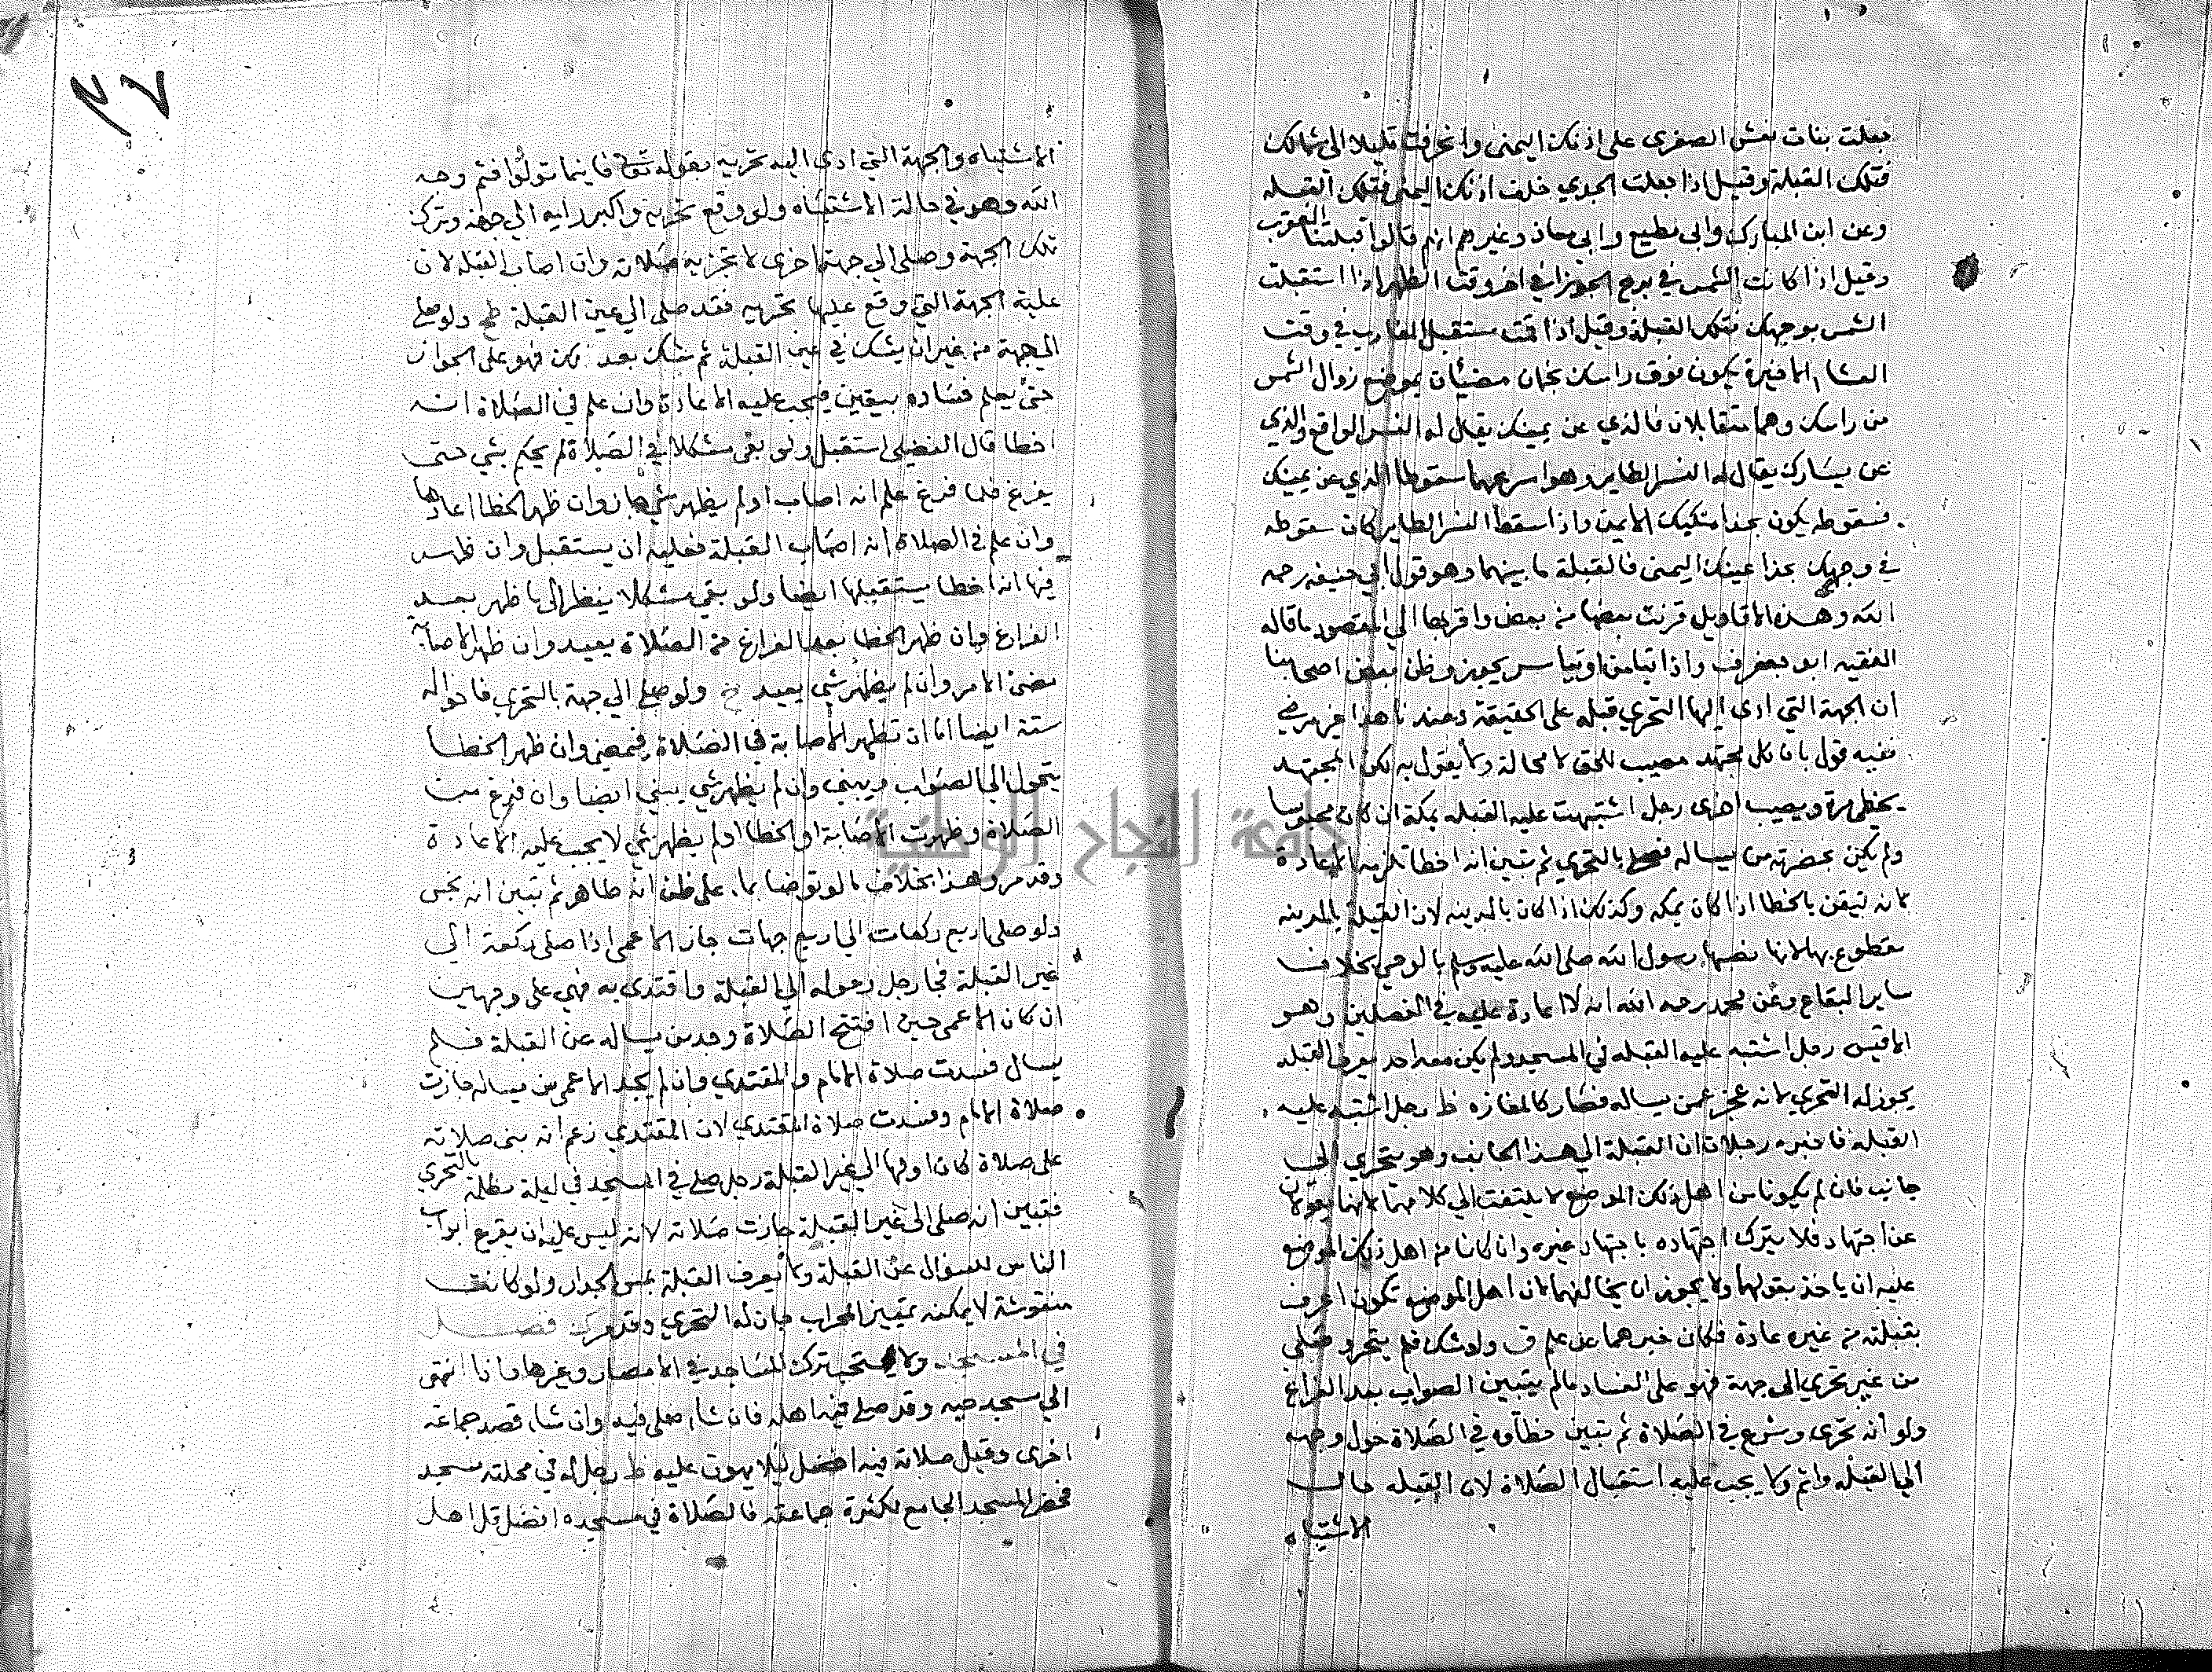 جعلت بنات نعش الصغرى على اذنك اليمنى وانحرفت قليلا الى شمالك
فتلك القبلة وقيل اذا جعلت الجدي خلف اذنك اليمنى فتلك القبله
وعن ابن المبارك وابي مطيع وابي معاذ وغيرهم انهم قالوا قبلتنا العقرب
وقيل اذا كانت الشمس في برج الجوزا في اخر وقت الظهر اذا استقبلت
الشمس بوجهك فتلك القبلة وقيل اذا قمت مستقبل المغارب في وقت
العشا الاخيرة يكون فوق راسك نجمان مضيئان بموضع زوال الشمس
من راسك وهما متقابلان فالذي عن يمينك يقال له النسر الواقع والذي
عن يسارك يقال له النسر الطاير وهو اسرعهما سقوطا الذي عن يمينك
فسقوطه يكون بحذا منكبك الايمن واذا سقط النسر الطاير كان سقوطه
في وجهك بحذا عينك اليمنى فالقبلة ما بينهما وهو قول ابي حنيفه رحمه
الله وهذه الاقاويل قربت بعضها من بعض واقربها الي المقصود ما قاله
الفقيه ابو جعفر ف واذا تيامن او تياسر يجوز وظن بعض اصحابنا
ان الجهة التي ادى اليها التحري قبله على الحقيقة وعندنا هذا غير مرضي
ففيه قول بان كل مجتهد مصيب للحق لا محالة ولا يقول به لكن المجتهد
يخطي مرة ويصيب اخرى رجل اشتبهت عليه القبله بمكة ان كان محبوسا
ولم يكن بحضرته من يساله فصلى بالتحري ثم تبين انه اخطا تلزمه الاعادة
لانه تيقن بالخطا اذا كان بمكه وكذلك اذا كان بالمدينه لان القبلة بالمدينه
مقطوع بها لانها نصبها رسول الله صلى الله عليه وسلم بالوحي بخلاف
ساير البقاع وعن محمد رحمه الله انه لا اعادة عليه في الفصلين وهو
الاقيس رجل اشتبه عليه القبله في المسجد ولم يكن معه احد يعرف القبله
يجوز له التحري لانه عجز عمن يساله فصار كالمفازه ظ رجل اشتبه عليه
القبلة فاخبره رجلان ان القبلة الي هذا الجانب وهو يتحرى الى
جانب فان لم يكونا من اهل ذلك الموضع لا يلتفت الي كلامهما لانهما يقولان
عن اجتهاد فلا يترك اجتهاده باجتهاد غيره وان كانا من اهل ذلك الموضع
عليه ان ياخذ بقولهما ولا يجوز ان يخالفهما لان اهل الموضع تكون اعرف
بقبلته من غيره عادة فكان خبرهما عن علم ق ولو شك فلم يتحر وصلى
من غير تحري الى جهة فهو على الفساد ما لم يتبين الصواب بعد الفراغ
ولو انه تحرى وشرع في الصلاة ثم تبين خطاوه في الصلاة حول وجهه
الي القبله واتم ولا يجب عليه استقبال الصلاة لان القبله حال
الاشتباه
٣٧
الاشتباه والجهة التي ادى اليه تحريه بقوله تعالى فاينما تولوا فثم وجه
الله وهو في حالة الاشتباه ولو وقع تحريه واكبر رايه الي جهة وترك
تلك الجهة وصلى الي جهة اخرى لا تجزيه صلاته وان اصاب القبله لان
الجهة التي وقع عليها تحريه فقد صلى الي عين القبلة ولو صلى
الى جهة من غير ان يشك في عين القبلة ثم شك بعد ذلك فهو على الجواز
حتى يعلم فساده بيقين فيجب عليه الاعادة وان علم في الصلاة انه
اخطا قال الفضلي استقبل ولو بقي مشكلا في الصلاة لم يحكم بشي حتى
يفرغ فلما فرغ علم انه اصاب او لم يظهر شي جاز وان ظهر الخطا اعادها
وان علم في الصلاة انه اصاب القبلة فعليه ان يستقبل وان ظهر
فيها انه اخطا يستقبلها ايضا ولو بقي مشكلا ينظر الى ما ظهر بعد
الفراغ فان ظهر الخطا بعد الفراغ من الصلاة يعيد وان ظهر الاصابة
مضى الامر وان لم يظهر شي يعيد ولو صلى الي جهة بالتحري فاحواله
ستة ايضا اما ان تظهر الاصابة في الصلاة فيمضي وان ظهر الخطا
يتحول الي الصواب ويبني وان لم يظهر شي يبني ايضا وان فرغ من
الصلاة وظهرت الاصابة او الخطا او لم يظهر شي لا يجب عليه الاعادة
وقد مر وهذا بخلاف ما لو توضا بما على ظن انه طاهر ثم تبين انه نجس
ولو صلى اربع ركعات الى اربع جهات جاز الاعمى اذا صلى ركعة الي
غير القبلة فجا رجل وحوله الي القبلة واقتدى به فهي على وجهين
ان كان الاعمى حين افتتح الصلاة وجد من يساله عن القبلة فلم
يسال فسدت صلاة الامام والمقتدي وان لم يجد الاعمى من يساله جازت
صلاة الامام وفسدت صلاة المقتدي لان المقتدي زعم انه بنى صلاته
على صلاة كان اولها الي غير القبلة رجل صلى في المسجد في ليلة مظلمة بالتحري
فتبين انه صلى الى غير القبلة جازت صلاته لانه ليس عليه ان يقرع ابواب
الناس للسؤال عن القبلة ولا يعرف القبلة بمس الجدار ولو كانت
منقوشة لا يمكنه تمييز المحراب جاز له التحري وقد مر فصل
في المسجد ولا يستحب ترك المساجد في الامصار وغيرها فاذا انتهى
الي مسجد حيه وقد صلى فيه اهله فان شا صلى فيه وان شا قصد جماعة
اخرى وقيل صلاته فيه افضل ليلا يهون عليه ظ رجل له في محلته مسجد
فحضر المسجد الجامع لكثرة جماعته فالصلاة في مسجده افضل قل اهل
جامعة النجاح الوطنية